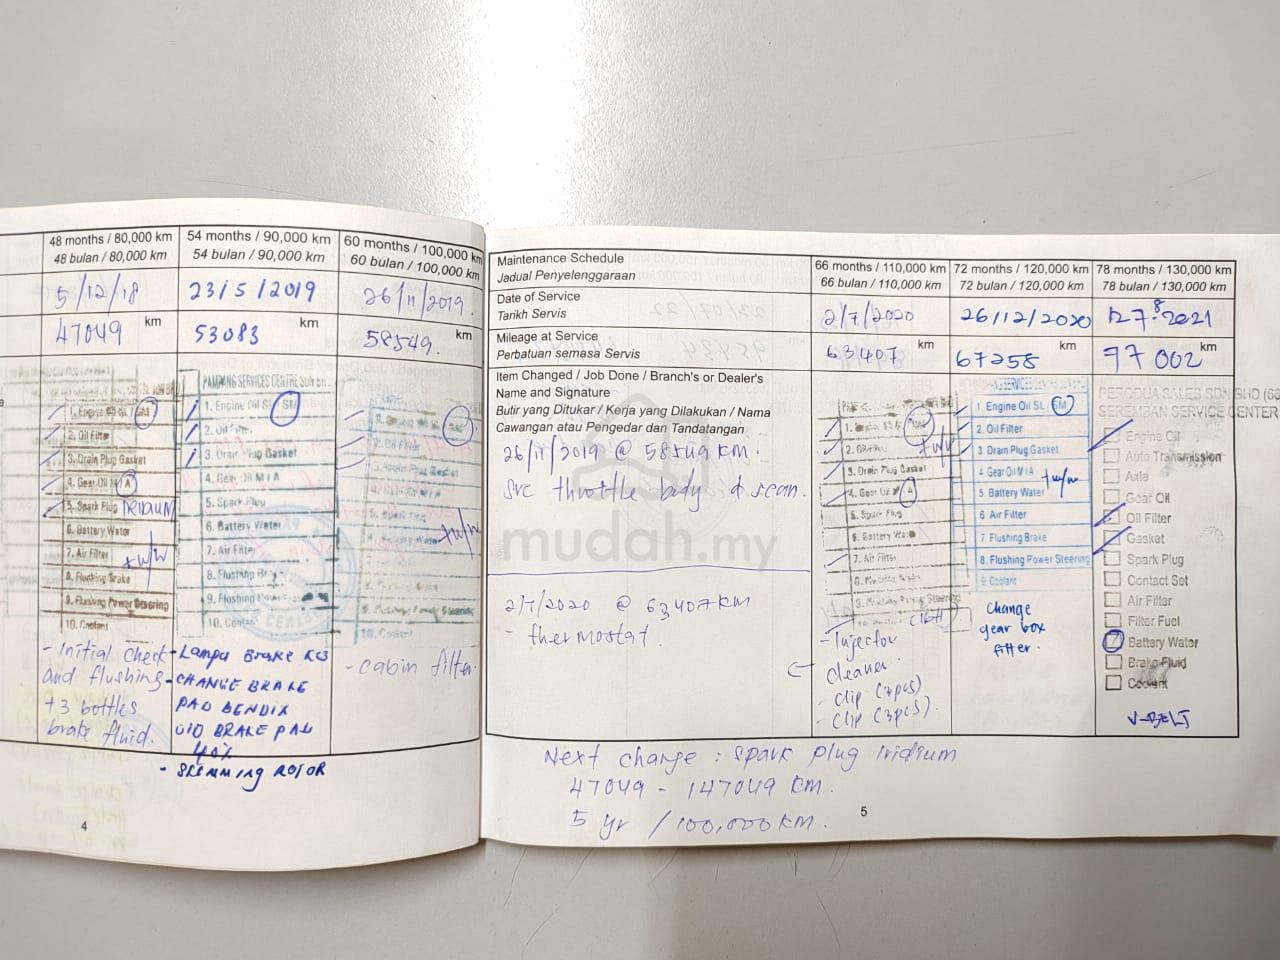 48 months / 80,000 km
48 bulan / 80,000 km
5/12/18
47049 km
1. Engine Oil SM
2. Oil Filter
3. Drain Plug Gasket
4. Gear Oil M/A
5. Spark Plug IRIDIUM
6. Battery Water
7. Air Filter
+w/w
8. Flushing Brake
9. Flushing Power Steering
10. Coolant
- Initial check
and flushing
+3 bottles
brake fluid.
54 months / 90,000 km
54 bulan / 90,000 km
23/5/2019
53083 km
SERVICES CENTRE SDN BH
1. Engine Oil SL SM
2. Oil Filter
3. Drain Plug Gasket
4. Gear Oil M/A
5. Spark Plug
6. Battery Water
7. Air Filter
8. Flushing Brake
9. Flushing Power
10. Coolant
- Lampu BRAKE
- CHANGE BRAKE
PAD BENDIX
OLD BRAKE PAD
40%
- SKIMMING ROTOR
60 months / 100,000 km
60 bulan / 100,000 km
26/11/2019.
58549. km
+w/w
10. Coolant
- cabin filter.
4
Maintenance Schedule
Jadual Penyelenggaraan
Date of Service
Tarikh Servis
Mileage at Service
Perbatuan semasa Servis
Item Changed / Job Done / Branch's or Dealer's
Name and Signature
Butir yang Ditukar / Kerja yang Dilakukan / Nama
Cawangan atau Pengedar dan Tandatangan
26/11/2019 @ 58549 KM.
svc throttle body & scan.
mudah.my
2/7/2020 @ 63407KM
- thermostat.
66 months / 110,000 km
66 bulan / 110,000 km
2/7/2020
63407 km
2. Oil Filter
+w/w
3. Drain Plug Gasket
4. Gear Oil A
5. Spark Plug
6. Battery Water
7. Air Filter
- Injector
cleaner.
- clip (7pcs)
- clip (3pcs).
72 months / 120,000 km
72 bulan / 120,000 km
26/12/2020
67258 km
1 Engine Oil SL SM
2 Oil Filter
3 Drain Plug Gasket
4 Gear Oil M/A
+w/w
5 Battery Water
6 Air Filter
7 Flushing Brake
8. Flushing Power Steering
9 Coolant
change
gear box
filter.
78 months / 130,000 km
78 bulan / 130,000 km
8.2021
77002 km
PERODUA SALES SDN BHD
SEREMBAN SERVICE CENTER
Engine Oil
Auto Transmission
Axle
Gear Oil
Oil Filter
Gasket
Spark Plug
Contact Set
Air Filter
Filter Fuel
Battery Water
Brake Fluid
Coolant
V-BELT
Next change : spark plug iridium
47049 - 147049 KM.
5 yr / 100,000 KM.
5